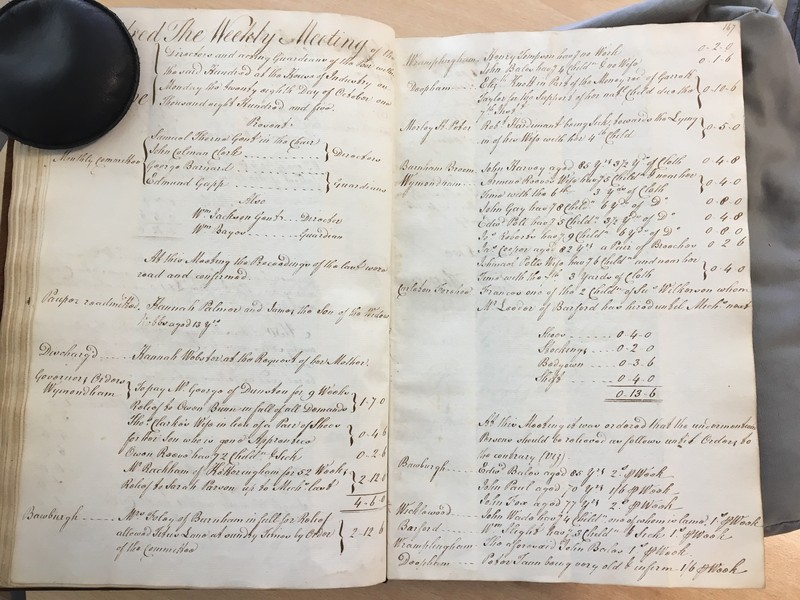 The Weekly Meeting of the
Directors and acting Guardians of the Poor within
the said Hundred at the House of Industry on
Monday the twenty eighth Day of October one
Thousand eight Hundred and five.
Present
Samuel Thorne Gent. in the Chair
Monthly Committee John Colman Clerk Directors
George Barnard
Edmund Gapp Guardians
Also
Wm. Jackson Gent. Director
Wm. Bayes Guardian
At this Meeting the Proceedings of the last were
read and confirmed.
Pauper readmitted. Hannah Palmer and James the Son of the Widow
aged 13 Yrs.
Discharg'd Hannah Webster at the Request of her Mother.
Governors Orders
Wymondham To pay Mr. George of for 9 Weeks
Relief to Owen Bunn in full of all Demands 1-7-0
Thos. Clark's Wife in lieu of a Pair of Shoes
for her Son who is gone Apprentice 0-4-6
Owen Reeve has 2 Childn. Sick 0-2-6
Mr. Buckham of Hetheringham for 52 Weeks
Relief to Sarah Parson up to Michs. last 2-12-0
4-6-0
Bawburgh Mr. of Barnham in full for Relief
allowed Lane at sundry Times by Order
of the Committee 2-12-6
167
Wramplingham Henry Simpson has no Work 0-2-0
John Bales has 4 Childn. & no Wife 0-1-6
Deopham Elizth. Knott in part of the Money recd. of Garrett
Taylor for the Support of her natl. Child due the
7th. Inst. 0-10-6
Morley St. Peter Robt. Hardiment being Sick, towards the Lying
in of his Wife with her 4th. Child 0-5-0
Barnham Broom John Harvey aged 85 Yrs. 3½ Yds. of Cloth 0-4-8
Wymondham Reeves Wife has 5 Childn. & near her
Time with the 6th. 3 Yds. of Cloth 0-4-0
John Gay has 8 Childn. 6 Yds. of Do. 0-8-0
Edwd. has 5 Childn. 3½ Yds. of Do. 0-4-8
Jas. Roberts has 9 Childn. 6 Yds. of Do. 0-8-0
Jas. Cooper aged 82 Yrs. a Pair of Breeches 0-2-6
Wife has 6 Childn. and near her
Time with the 3 Yards of Cloth 0-4-0
Frances one of the 2 Childn. of Wilkerson whom
Mr. of Barford has hired until Michs. next
Shoes 0-4-0
Stockings 0-2-0
Bodgown 0-3-6
Shift 0-4-0
0-13-6
At this Meeting it was ordered that the undermentioned
Persons should be relieved as follows until Orders to
the contrary (Viz.)
Bawburgh Edwd. Bales aged 85 Yrs. 2s. p Week
John Paul aged 70 Yrs. 1/6 p Week
John Fox aged 77 Yrs. 2s. p Week
Wicklewood John Winter has 4 Childn. one of whom is lame 1s. p Week
Barford Wm. Slight has 5 Childn. & Sick 1s. p Week
Wramplingham The aforesaid John Bales 1s. p Week
Deopham Peter Tann being very old & infirm 1/6 p Week